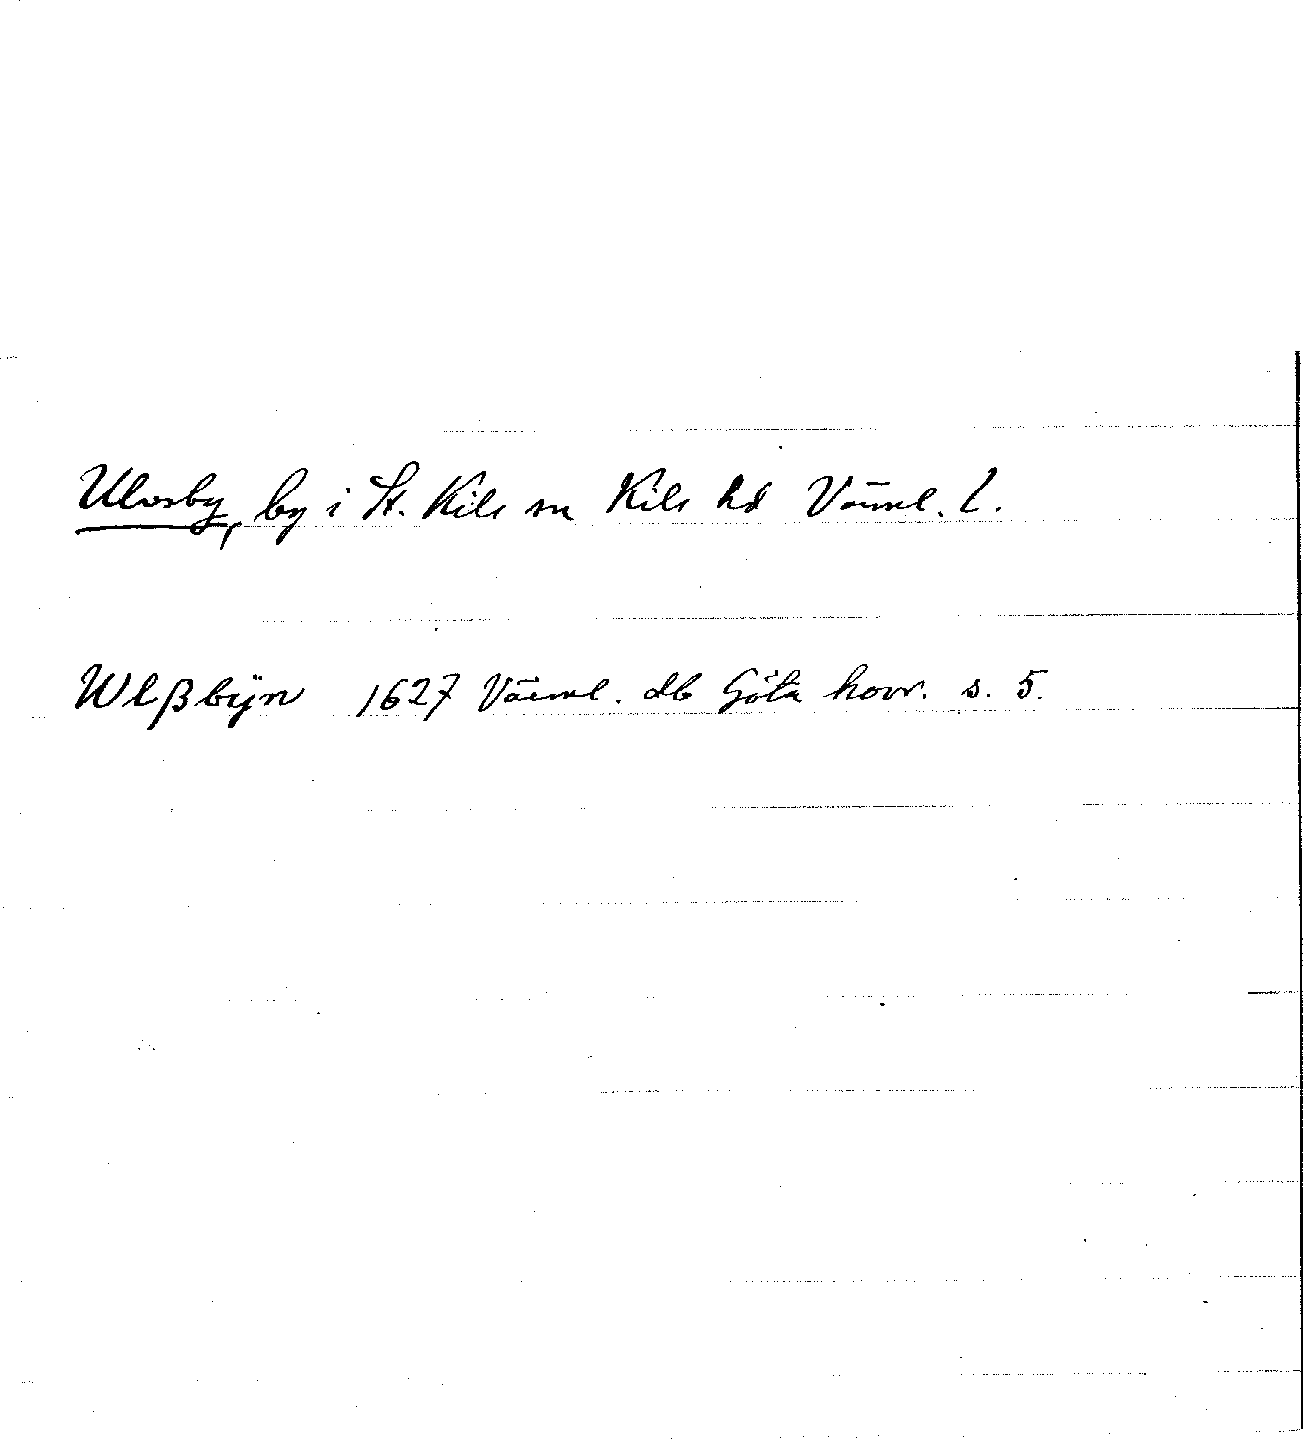 Ulvsby, by i St. Kils sn Kils hd Värml. l.
Wlßbÿn 1627 Värml. db Göta hovr. s. 5.